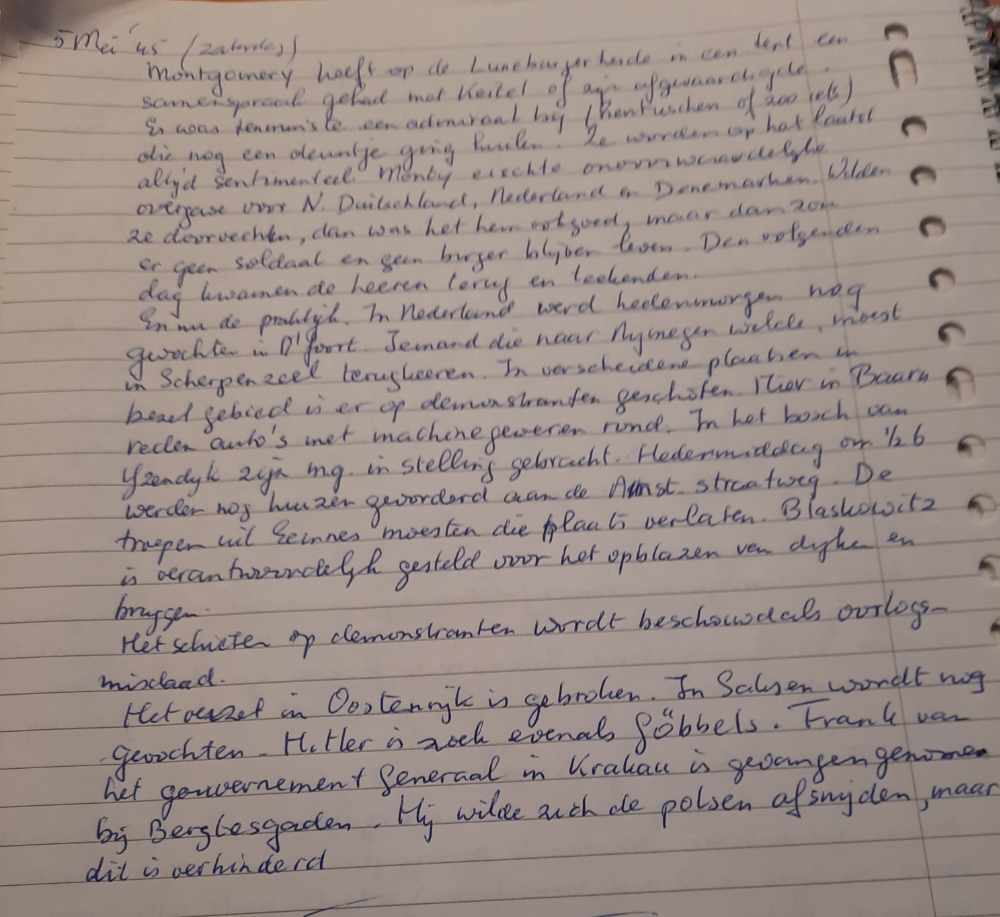 5 Mei '45 (zaterdag)
Montgomery heeft op de Luneburgerheide in een tent een
samenspraak gehad met Keitel of zijn afgevaardigde.
Er was tenminste een admiraal bij (kentuschen of zoo iets)
die nog een deuntje ging huilen. Ze worden op het laatst
altijd sentimenteel. Monty eischte onvoorwaardelijke
overgave voor N. Duitschland, Nederland en Denemarken. Wilden
ze doorvechten, dan was het hem ook goed, maar dan zou
er geen soldaat en geen burger blijven leven. Den volgenden
dag kwamen de heeren terug en teekenden.
En nu de praktijk. In Nederland werd hedenmorgen nog
gevochten in A'foort. Iemand die naar Nymegen wilde, moest
in Scherpenzeel terugkeeren. In verscheidene plaatsen in
bezet gebied is er op demonstranten geschoten. Hier in Baarn
reden auto's met machinegeweren rond. In het bosch van
Yzendyk zijn mg. in stelling gebracht. Hedenmiddag om ½ 6
werden nog huizen gevorderd aan de Amst. straatweg. De
troepen uit Eemnes moesten die plaats verlaten. Blaskowitz
is verantwoordelijk gesteld voor het opblazen van dyken en
bruggen.
Het schieten op demonstranten wordt beschouwd als oorlogs-
misdaad.
Het verzet in Oostenrijk is gebroken. In Saksen wordt nog
gevochten. Hitler is zoek evenals Göbbels. Frank van
het gouvernement Generaal in Krakau is gevangen genomen
bij Bergtesgaden. Hij wilde zich de polsen afsnijden, maar
dit is verhinderd